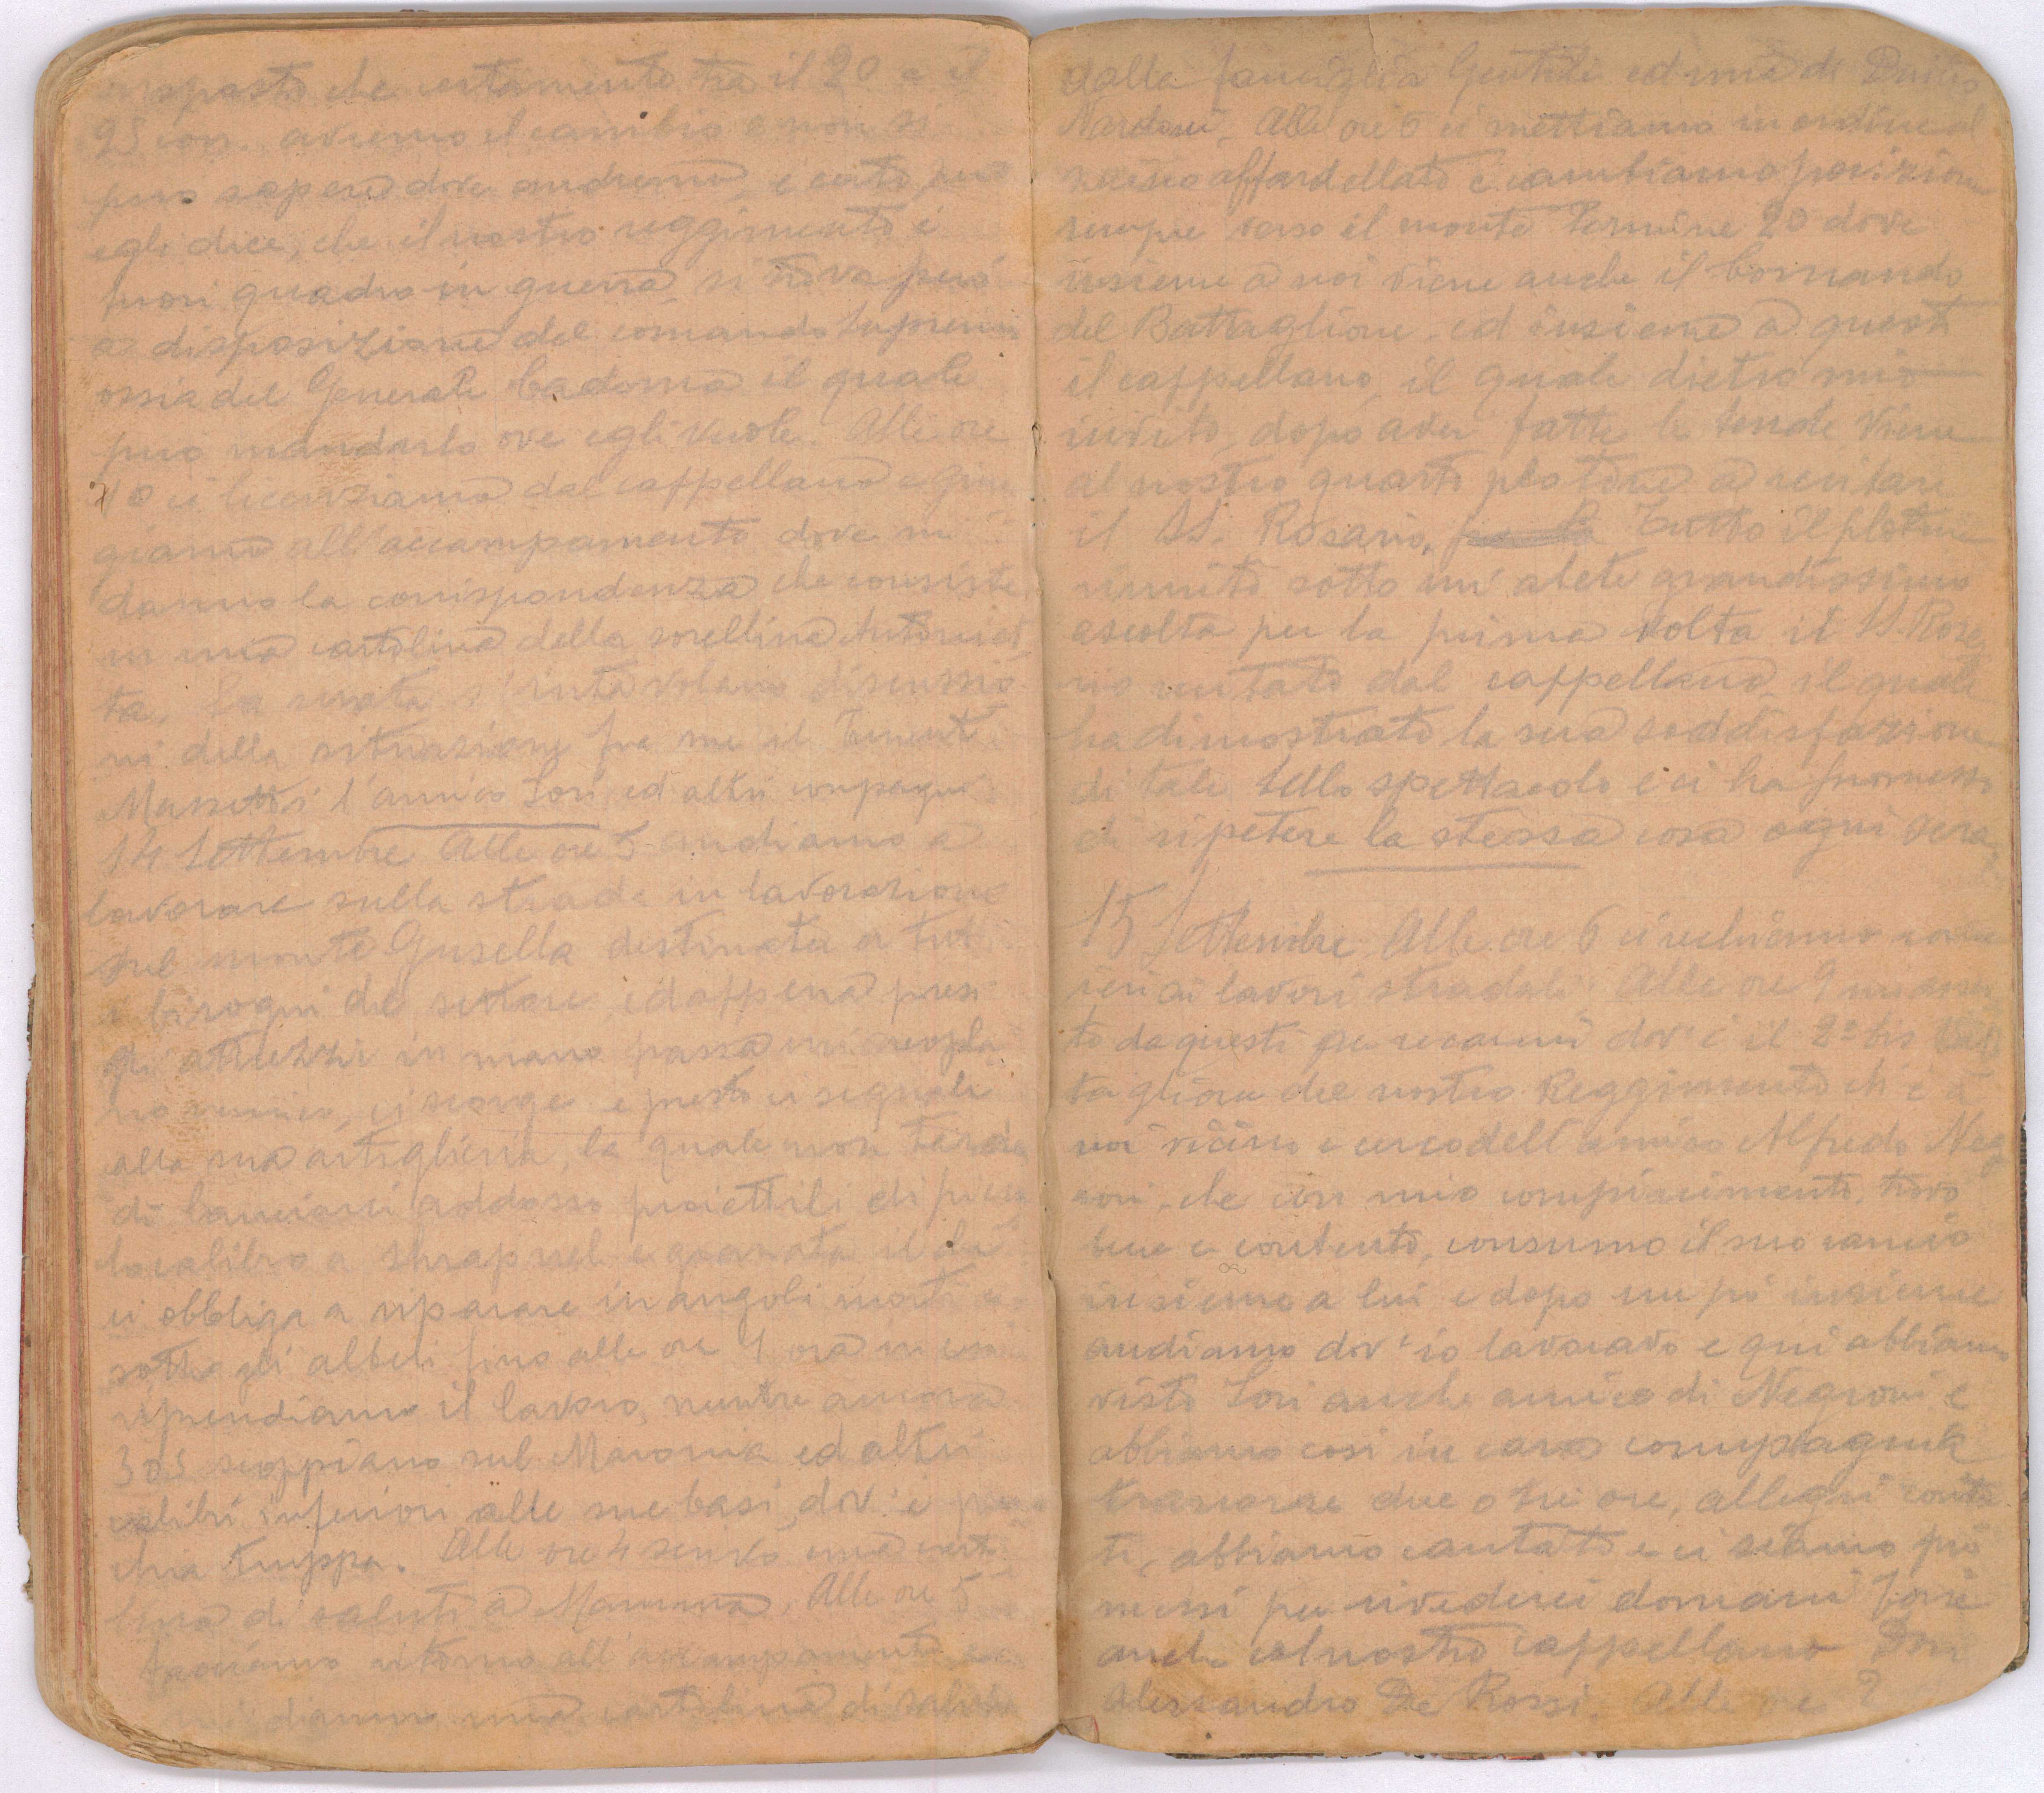 risposto che certamente tra il 20 e il
25 corr. avremo il cambio e non si
può sapere dove andremo, è certo però
egli dice, che il nostro reggimento è
fuori quadro in guerra, si trova però
a disposizione del comando Supremo
ossia del Generale Cadorna il quale
può mandarlo ove egli vuole. Alle ore
10 ci licenziamo dal cappellano e giun
giamo all'accampamento dove mi
danno la corrispondenza che consiste
in una cartolina della sorellina Antoniet
ta. La serata s'intavolano discussio
ni della situazione fra me il Tenente
l'amico Lori ed altri compagni
14 Settembre Alle ore 5 andiamo a
lavorare sulla strada in lavorazione
sul monte Gusella destinata a tutti
i bisogni del settore, ed appena presi
gli attrezzi in mano passa un areopla
no nemico, ci scorge e presto ci segnala
alla sua artiglieria, la quale non tarda
di lanciarci addosso proiettili di picco
lo calibro a shrapnel e granata il che
ci obbliga a riparare in angoli morti e
sotto gli alberi fino alle ore 9 ora in cui
riprendiamo il lavoro, mentre ancora
305 scoppiano sul Maronia ed altri
calibri inferiori alle sue basi, dov'è
truppa. Alle ore 4 scrivo una carto
lina di saluti a Mamma. Alle ore 5
facciamo ritorno all'accampamento
mi danno una cartolina di saluti
dalla famiglia Gentili ed una di Duilio
Nardoni. Alle ore 6 ci mettiamo in ordine al
zaino affardellato e cambiamo posizione
sempre verso il monte Termine 20 dove
insieme a noi viene anche il Comando
del Battaglione. ed insieme a questi
il cappellano, il quale dietro mio
invito, dopo aver fatte le tende viene
al nostro quarto plotone a recitare
il SS. Rosario. Tutto il plotone
riunito sotto un'abete grandissimo
ascolta per la prima volta il SS. Rosa
rio recitato dal cappellano, il quale
ha dimostrato la sua soddisfazione
di tale bello spettacolo e ci ha promesso
di ripetere la stessa cosa ogni sera
15 Settembre. Alle ore 6 ci rechiamo come
ieri ai lavori stradali. Alle ore 9 mi assen
to da questi per recarmi dov'è il 2° bis Bat
taglione del nostro Reggimento ch'è a
noi vicino e cerco dell'amico Alfredo Neg
roni, che con mio compiacimento, trovo
bene e contento, consumo il suo rancio
insieme a lui e dopo un po' insieme
andiamo dov'io lavoravo e qui abbiamo
visto Lori anche amico di Negroni e
abbiamo così in cara compagnia
trascorse due o tre ore, allegri conten
ti, abbiamo cantato e ci siamo pro
messi per rivederci domani forse
anche col nostro cappellano Don
Alessandro De Rossi. Alle ore 2